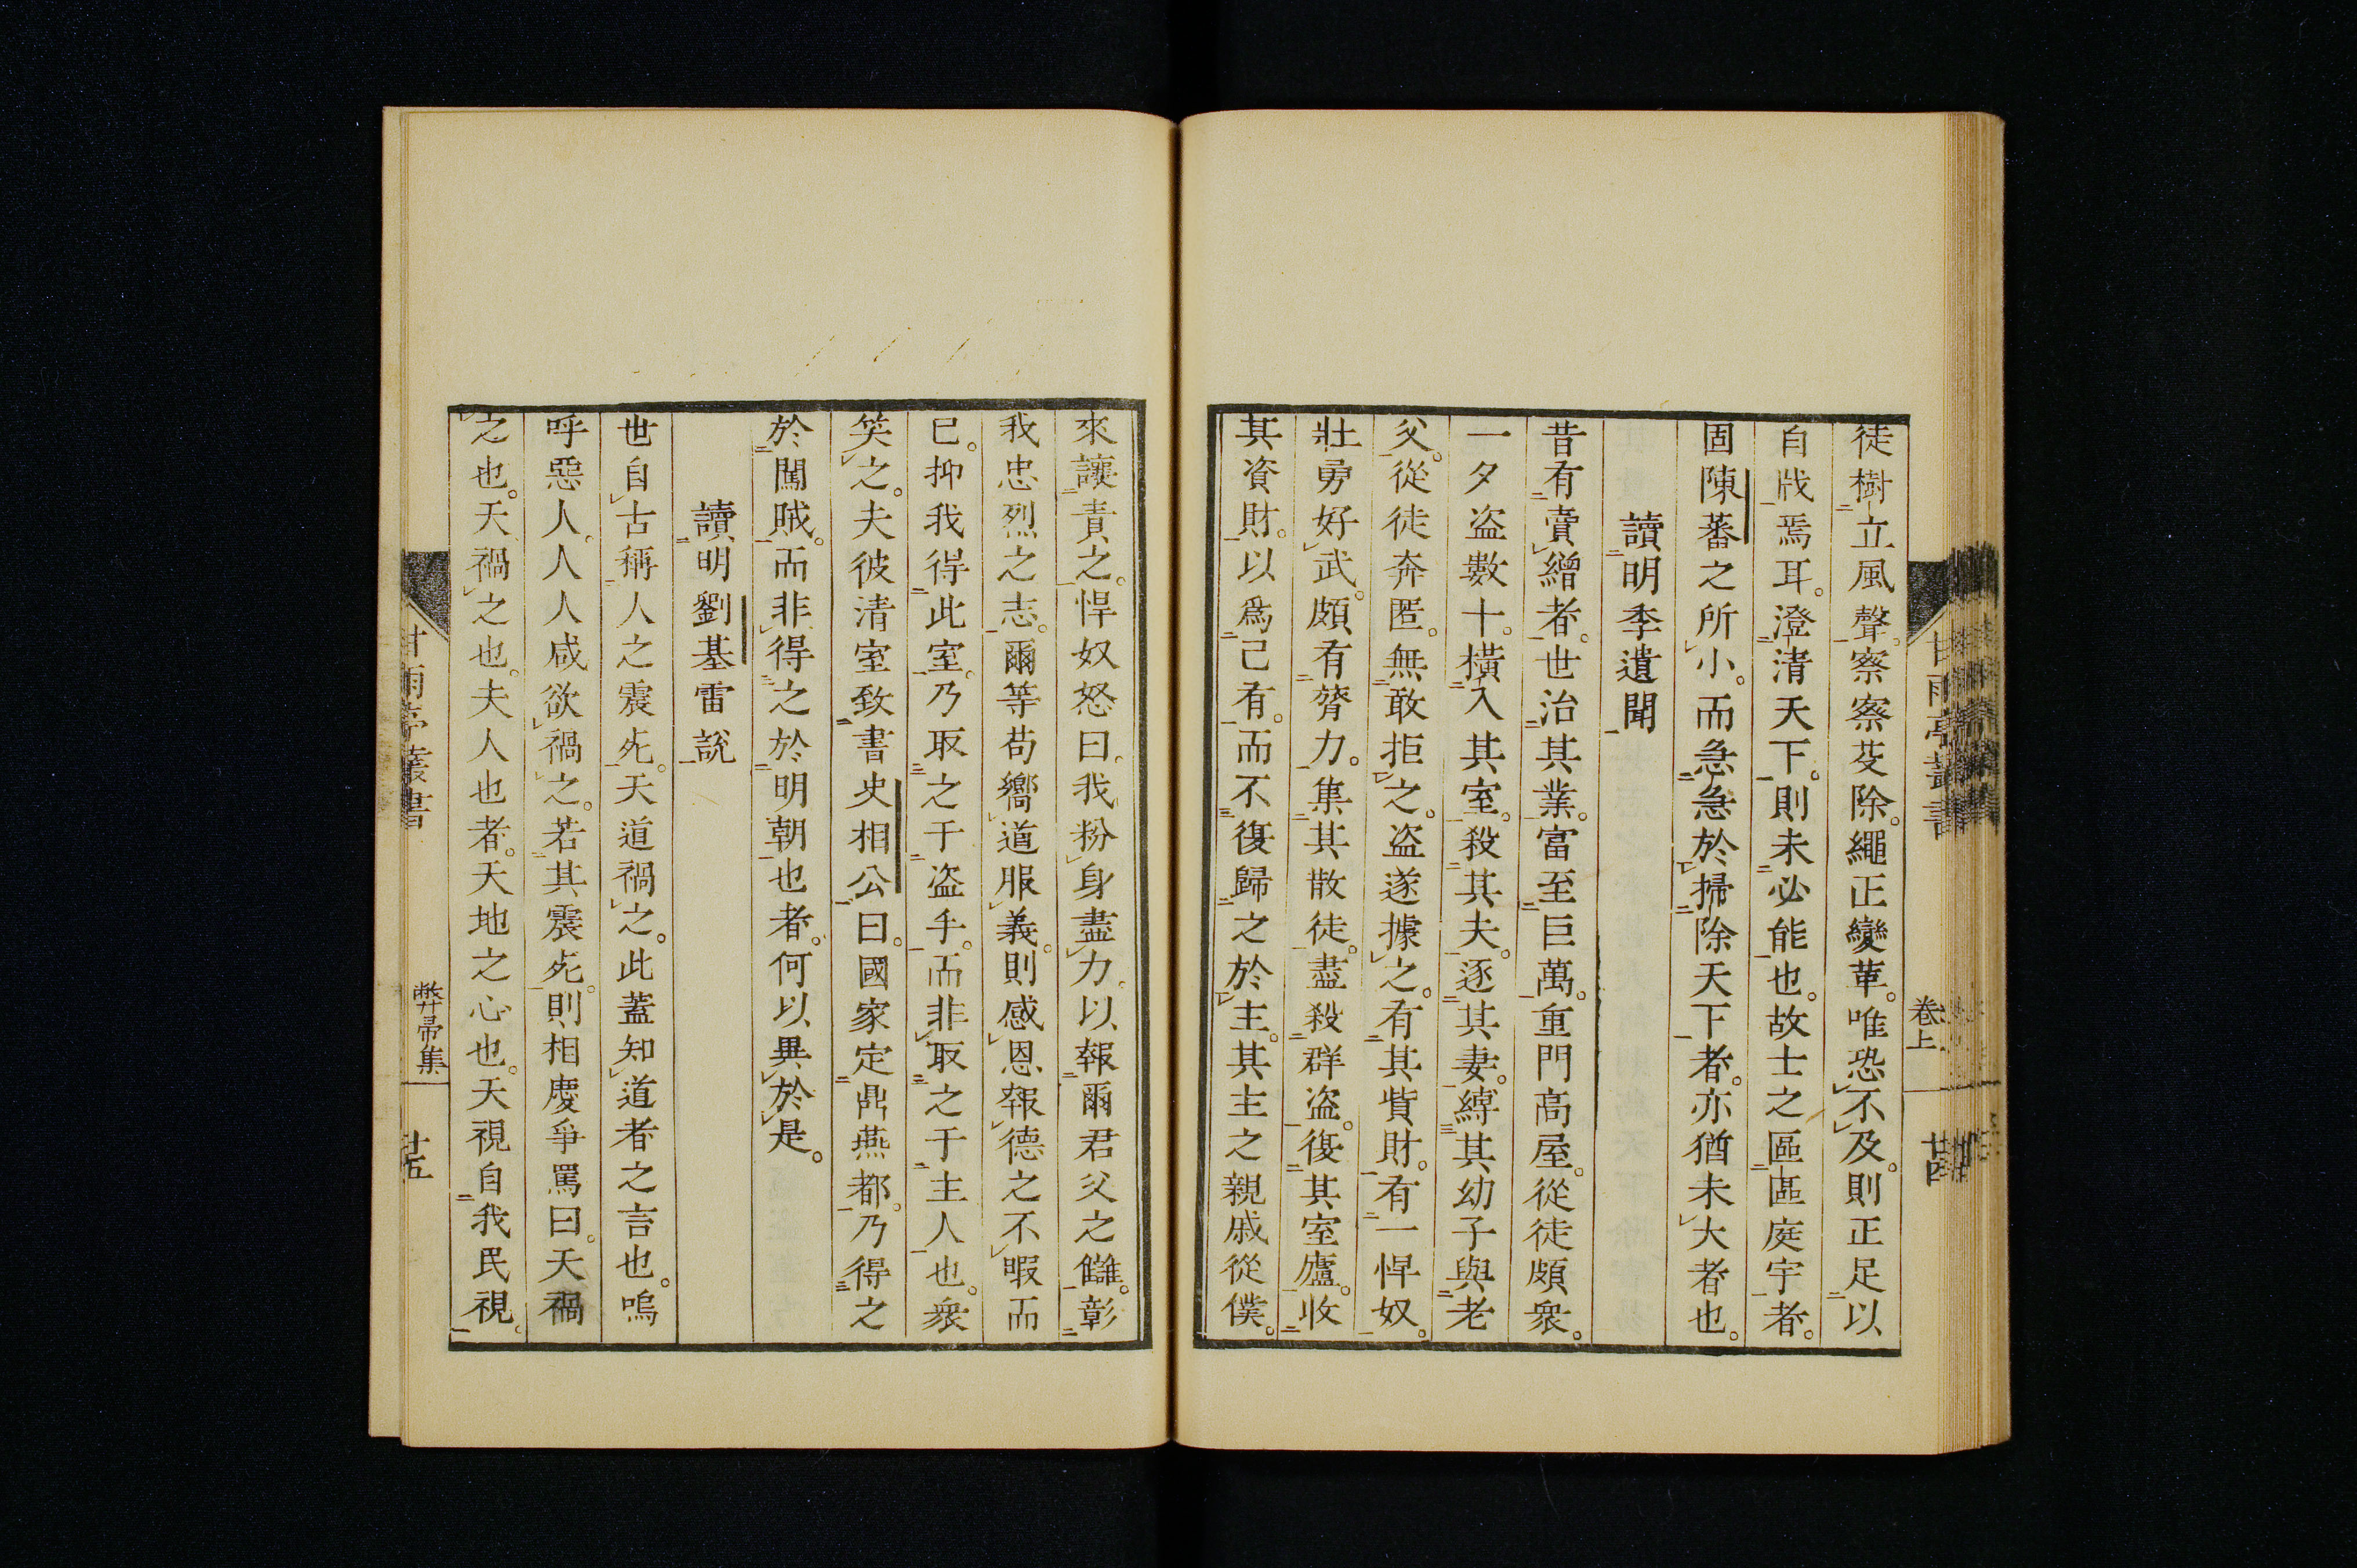 徒樹立風聲。察察芟除。繩正變革。唯恐不及。則正足以
自戕焉耳。澄清天下。則未必能也。故士之區區庭宇者。
固陳蕃之所小。而急急於掃除天下者。亦猶未大者也。
讀明季遺聞
昔有賣繒者。世治其業。富至巨萬。重門高屋。從徒頗衆。
一夕盗數十。横入其室。殺其夫。逐其妻。縛其幼子與老
父。從徒奔匿。無敢拒之。盗遂據之。有其貲財。有一悍奴。
壯勇好武。頗有膂力。集其散徒。盡殺群盗。復其室廬。收
其資財。以爲己有。而不復歸之於主。其主之親戚從僕。
甘雨亭叢書
卷上
廿四
來讓責之。悍奴怒曰。我粉身盡力。以報爾君父之讎。彰
我忠烈之志。爾等苟嚮道服義。則感恩報德之不暇而
已。抑我得此室。乃取之于盗乎。而非取之于主人也。衆
笑之。夫彼清室致書史相公曰。國家定鼎燕都。乃得之
於闖賊。而非得之於明朝也者。何以異於是。
讀明劉基雷說
世自古稱人之震死。天道禍之。此蓋知道者之言也。嗚
呼惡人。人人咸欲禍之。若其震死。則相慶爭罵曰。天禍
之也。天禍之也。夫人也者。天地之心也。天視自我民視。
甘雨亭叢書
弊帚集
廿五